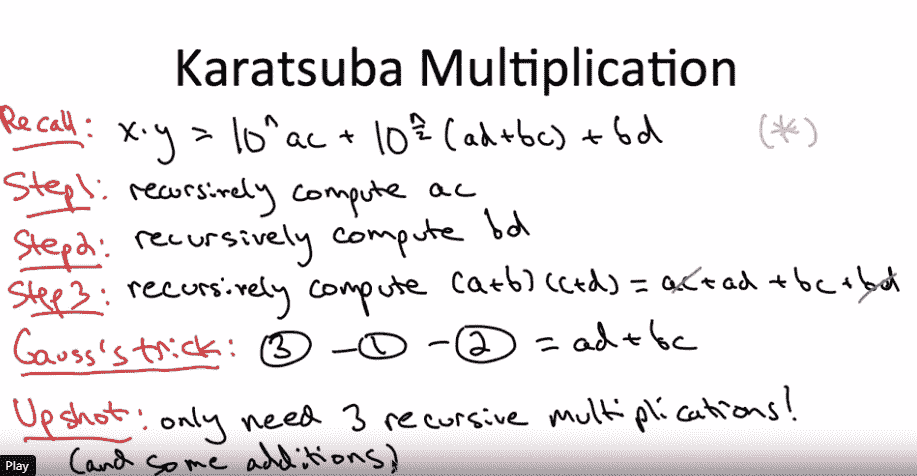 Karatsuba Multiplication
Recall: x·y = 10^n ac + 10^(n/2) (ad+bc) + bd (*)
Step1: recursively compute ac
Step2: recursively compute bd
Step3: recursively compute (a+b)(c+d) = ac+ad+bc+bd
Gauss's trick: ③ - ① - ② = ad+bc
Upshot: only need 3 recursive multiplications!
(and some additions)
Play